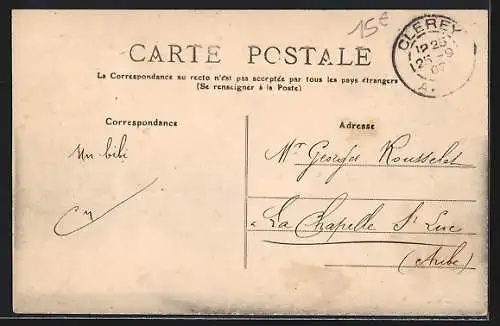 15€
CARTE POSTALE
La Correspondance au recto n'est pas acceptée par tous les pays étrangers
(Se renseigner à la Poste)
CLEREY
12 25
25 - 9
07
A
Correspondance
Adresse
Un bibi
Mr Georges Rousselet
La Chapelle St Luc
(Aube)